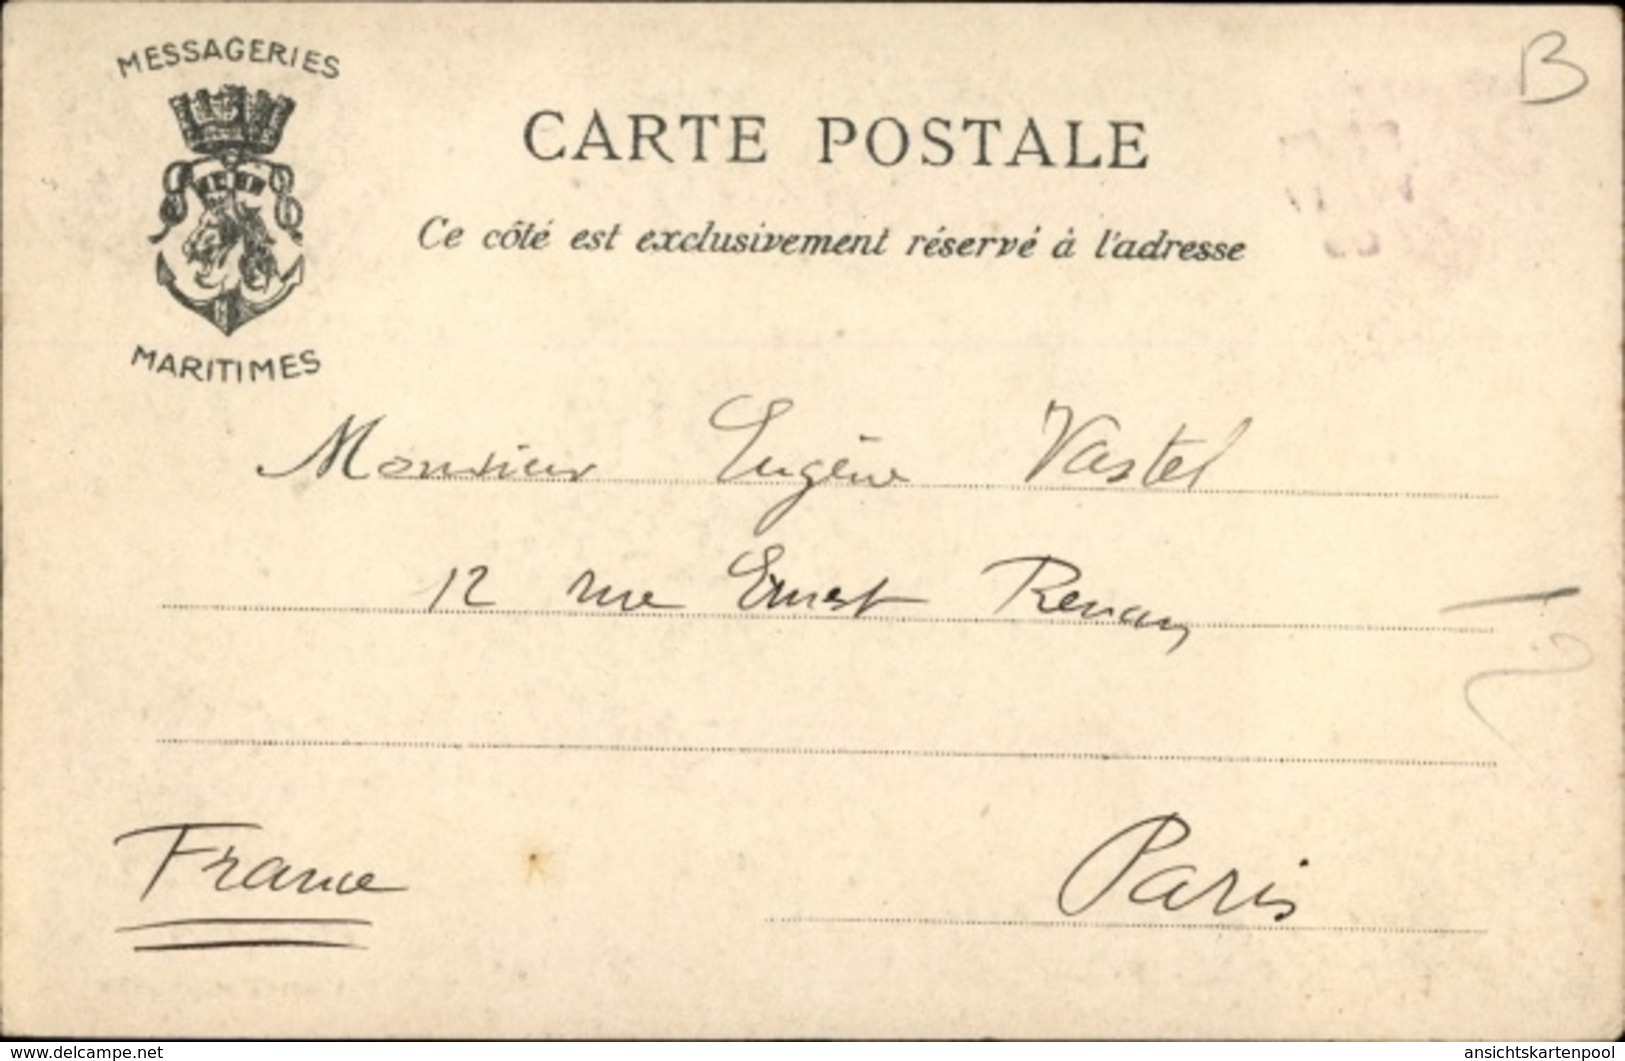 MESSAGERIES
MARITIMES
B
CARTE POSTALE
Ce côté est exclusivement réservé à l'adresse
Monsieur Eugène Vastel
12 rue Ernest Renan
France
Paris
www.delcampe.net
ansichtskartenpool